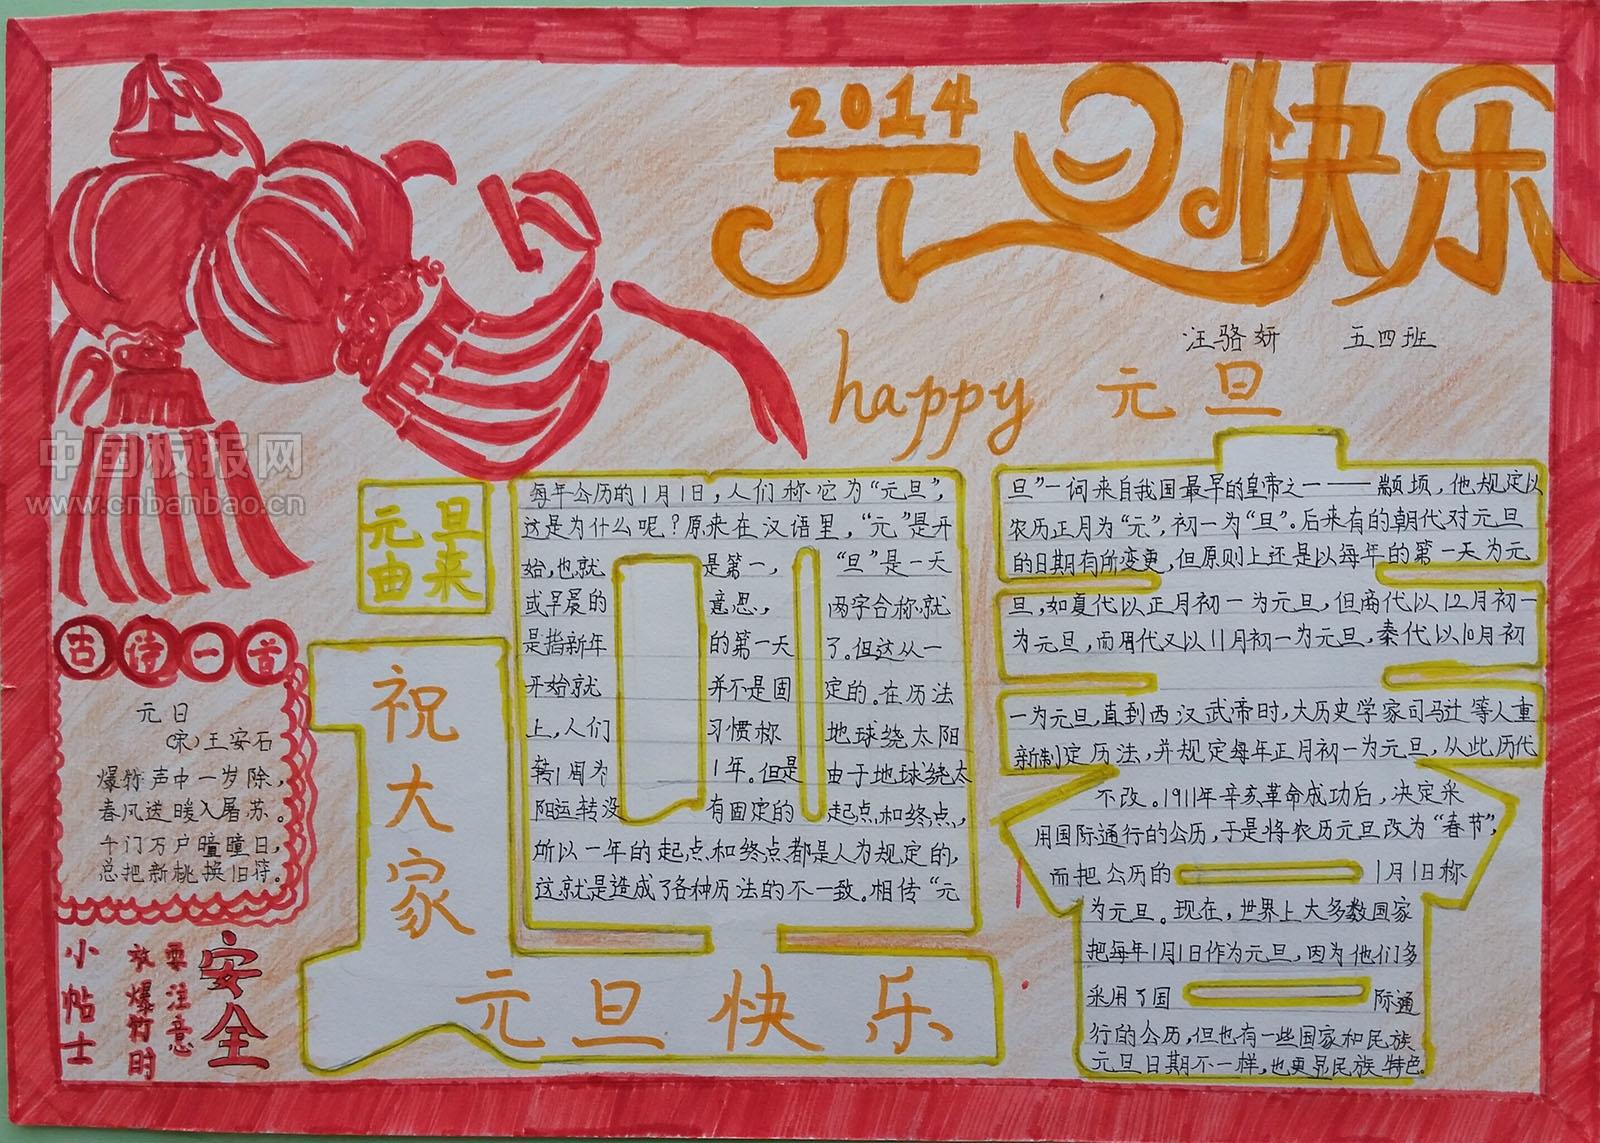 2014
元旦快乐
汪骆妍 五四班
happy 元旦
中国板报网
www.cnbanbao.cn
元旦
由来
每年公历的1月1日，人们称它为“元旦”，
这是为什么呢？原来在汉语里，“元”是开
始，也就是第一，“旦”是一天
或早晨的意思，两字合称，就
是指新年的第一天了。但这从一
开始就并不是固定的。在历法
上，人们习惯称地球绕太阳
转1周为1年。但是由于地球绕太
阳运转没有固定的起点和终点，
所以一年的起点和终点都是人为规定的，
这就是造成了各种历法的不一致。相传“元
旦”一词来自我国最早的皇帝之一——颛顼，他规定以
农历正月为“元”，初一为“旦”。后来有的朝代对元旦
的日期有所变更，但原则上还是以每年的第一天为元
旦，如夏代以正月初一为元旦，但商代以12月初一
为元旦，而周代又以11月初一为元旦，秦代以10月初
一为元旦，直到西汉武帝时，大历史学家司马迁等人重
新制定历法，并规定每年正月初一为元旦，从此历代
不改。1911年辛亥革命成功后，决定采
用国际通行的公历，于是将农历元旦改为“春节”，
而把公历的1月1日称
为元旦。现在，世界上大多数国家
把每年1月1日作为元旦，因为他们多
采用了国际通
行的公历，但也有一些国家和民族
元旦日期不一样，也更显民族特色。
祝大家
元旦快乐
古诗一首
元日
（宋）王安石
爆竹声中一岁除，
春风送暖入屠苏。
千门万户曈曈日，
总把新桃换旧符。
安全
要注意
放爆竹时
小帖士